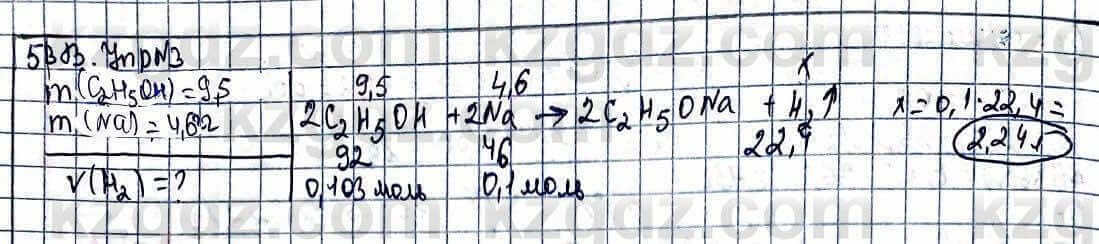 53бв. Упр№3
m(C₂H₅OH) = 9,5
m(Na) = 4,6г
V(H₂) = ?
9,5 4,6 x
2C₂H₅OH + 2Na → 2C₂H₅ONa + H₂↑
92 46 22,4
0,103 моль 0,1 моль
x = 0,1·22,4 =
2,24л
kzgdz.com